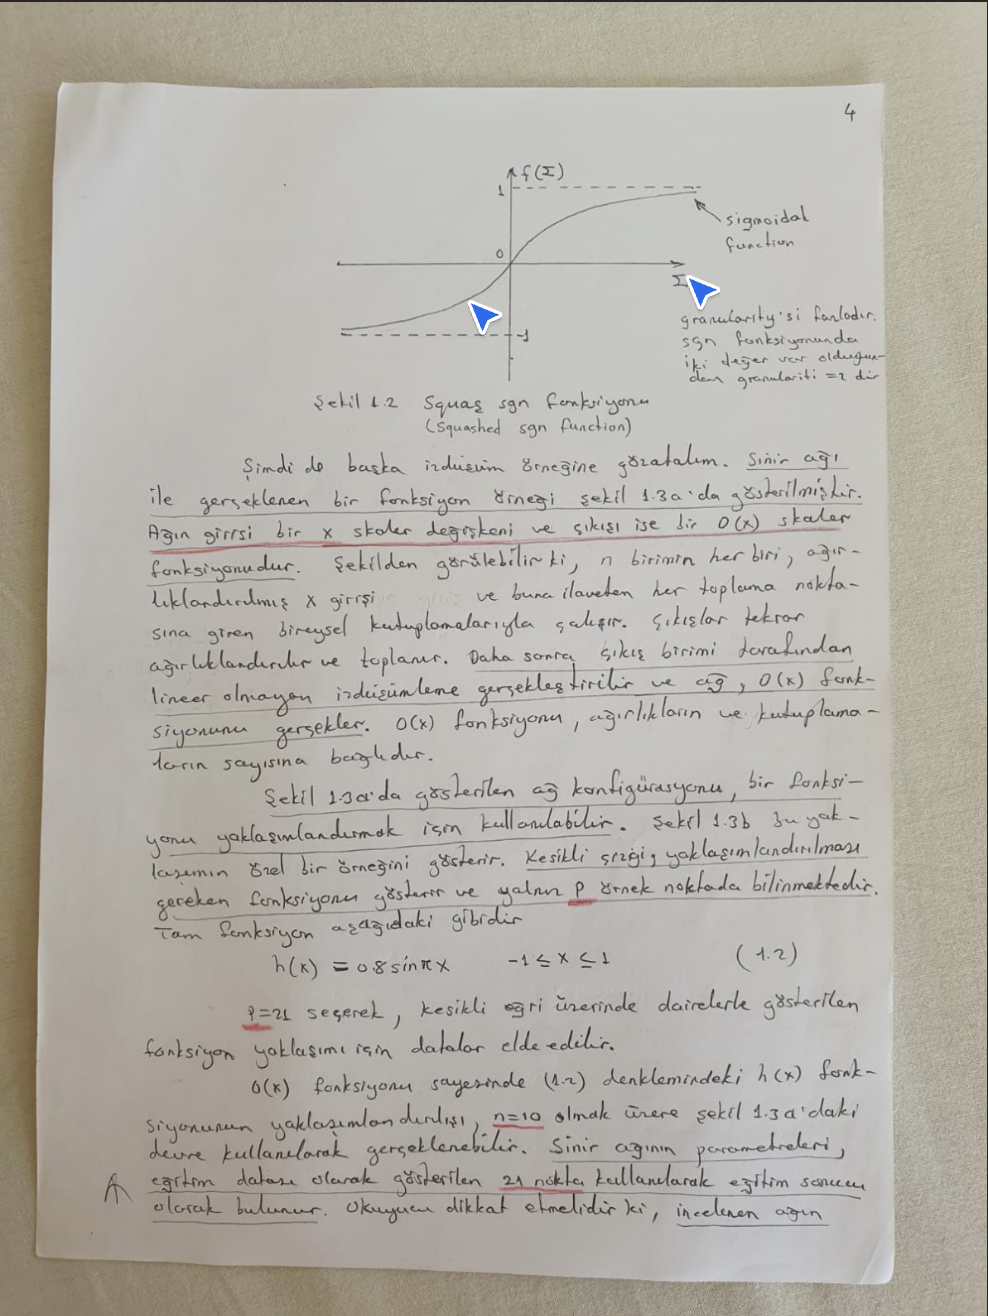 4
f(Σ)
1
sigmoidal
function
0
Σ
granularity'si fazladır.
sgn fonksiyonunda
-1
iki değer var olduğun-
dan granulariti =2 dir
Şekil 1.2 Squaş sgn fonksiyonu
(Squashed sgn function)
Şimdi de başka izdüşüm örneğine gözatalım. Sinir ağı
ile gerçeklenen bir fonksiyon örneği şekil 1.3a'da gösterilmiştir.
Ağın girişi bir x skaler değişkeni ve çıkışı ise bir O(x) skaler
fonksiyonudur. Şekilden görülebilir ki, n birimin her biri, ağır-
lıklandırılmış x girişi ve buna ilaveten her toplama nokta-
sına giren bireysel kutuplamalarıyla çalışır. Çıkışlar tekrar
ağırlıklandırılır ve toplanır. Daha sonra çıkış birimi tarafından
lineer olmayan izdüşümleme gerçekleştirilir ve ağ, O(x) fonk-
siyonunu gerçekler. O(x) fonksiyonu, ağırlıkların ve kutuplama-
ların sayısına bağlıdır.
Şekil 1.3a'da gösterilen ağ konfigürasyonu, bir fonksi-
yonu yaklaşımlandırmak için kullanılabilir. Şekil 1.3b bu yak-
laşımın özel bir örneğini gösterir. Kesikli çizgi, yaklaşımlandırılması
gereken fonksiyonu gösterir ve yalnız P örnek noktada bilinmektedir.
Tam fonksiyon aşağıdaki gibidir
h(x) = 0.8 sinπx -1 ≤ x ≤ 1 (1.2)
P=21 seçerek, kesikli eğri üzerinde dairelerle gösterilen
fonksiyon yaklaşımı için datalar elde edilir.
O(x) fonksiyonu sayesinde (1.2) denklemindeki h(x) fonk-
siyonunun yaklaşımlandırılışı, n=10 olmak üzere şekil 1.3a'daki
devre kullanılarak gerçeklenebilir. Sinir ağının parametreleri,
eğitim datası olarak gösterilen 21 nokta kullanılarak eğitim sonucu
olarak bulunur. Okuyucu dikkat etmelidir ki, incelenen ağın